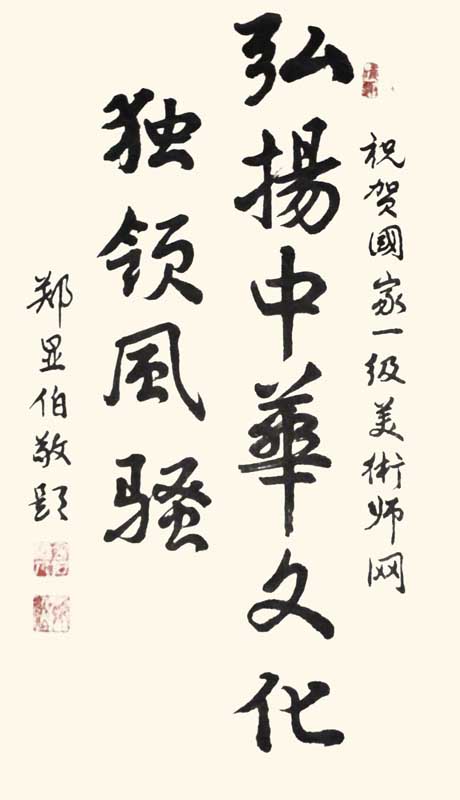 祝贺國家一级美術师网
弘揚中華文化
独领風骚
郑显伯敬题